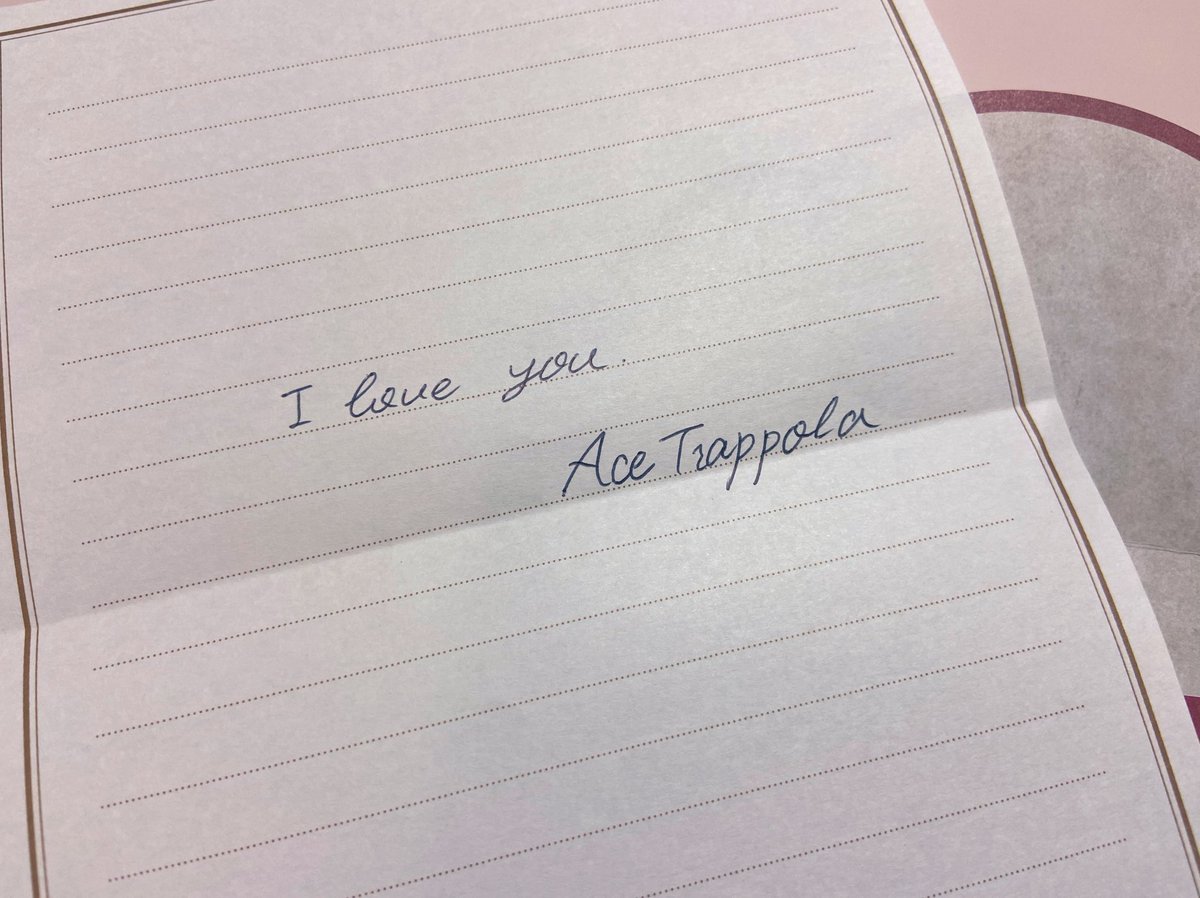 I love you.
Ace Trappola